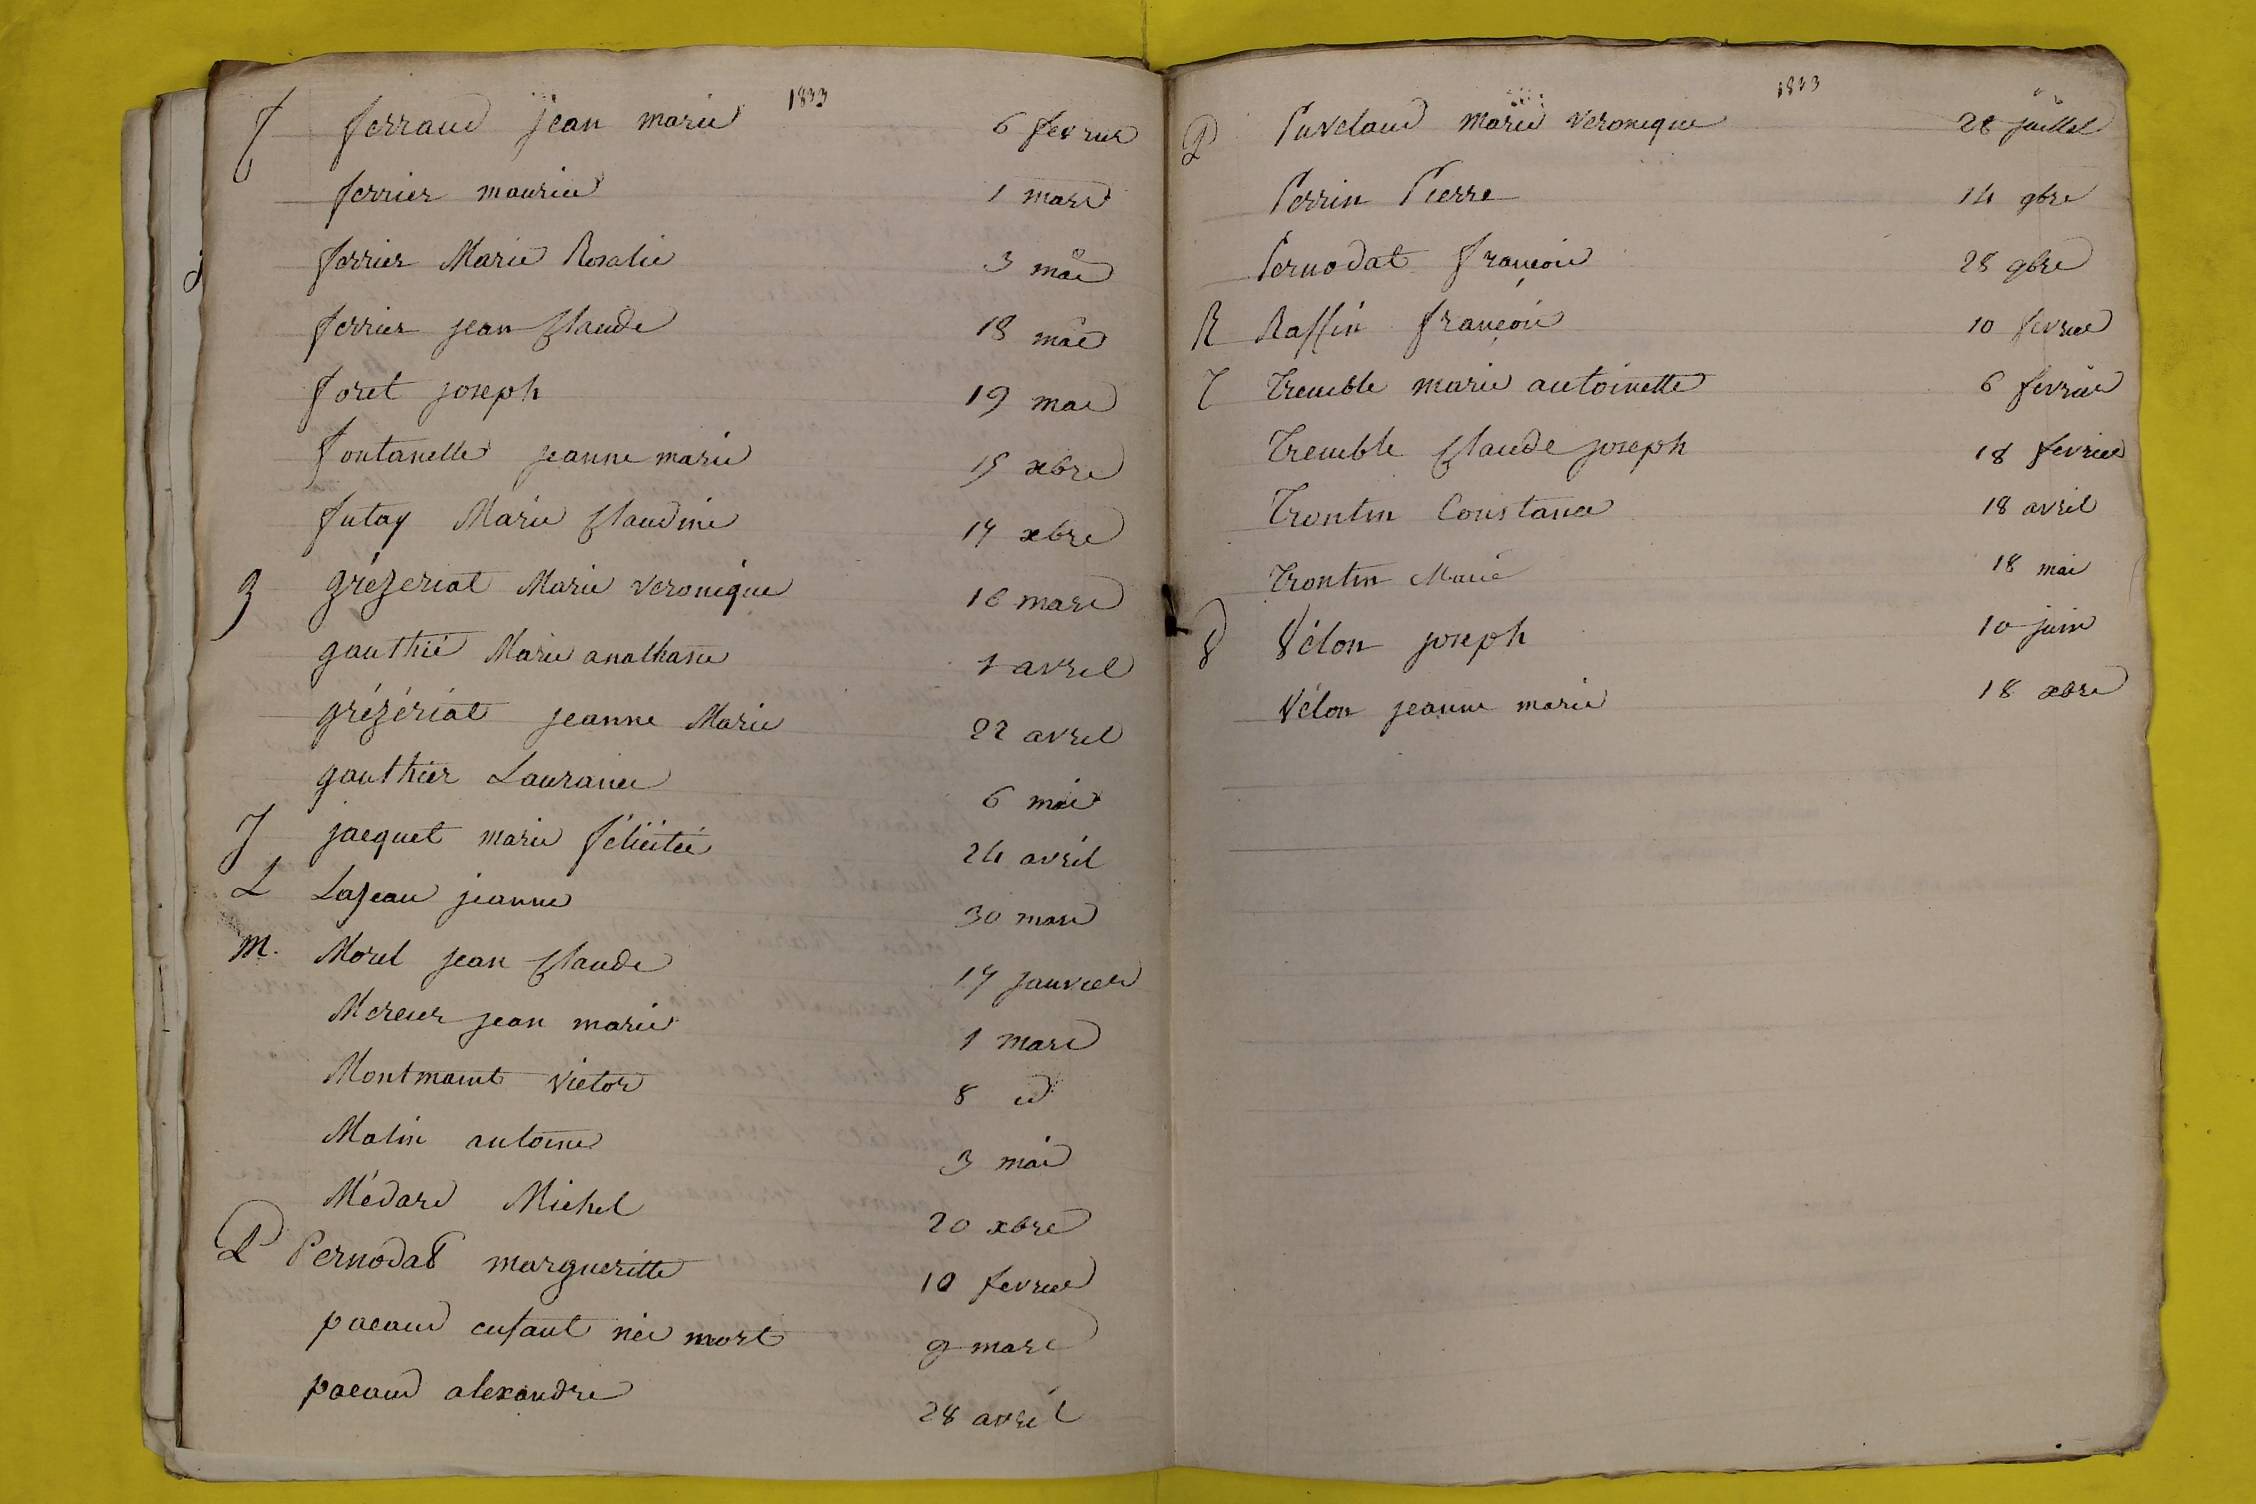 1833
f ferraud jean marie 6 fevrier
ferrier maurice 1 mars
ferrier Marie Rosalie 3 mai
ferrier jean Claude 18 mai
foret joseph 19 mai
fontanelle jeanne marie 15 xbre
futay Marie Claudine 17 xbre
g grézeriat Marie veronique 16 mars
gauthié Marie anathasie 1 avril
grézériat jeanne Marie 22 avril
gauthier Laurance 6 mai
J jacquet marie félicitée 24 avril
L Lazeau jeanne 30 mars
M. Morel jean Claude 17 janvier
Mercier jean marie 1 mars
Montmaint victor 8 id
Matin antoine 3 mai
Médard Michel 20 xbre
P Pernodat margueritte 10 fevrier
pacaud enfant née mort 9 mars
pacaud alexandre 28 avril
1833
P Paveland marie veronique 28 juillet
Perrin Pierre 14 9bre
Pernodat françois 28 9bre
R Raffin françois 10 fevrier
T Tremble marie antoinette 6 fevrier
Tremble Claude joseph 18 fevrier
Trontin Constance 18 avril
Trontin Marie 18 mai
V Vélon joseph 10 juin
Vélon jeanne marie 18 xbre